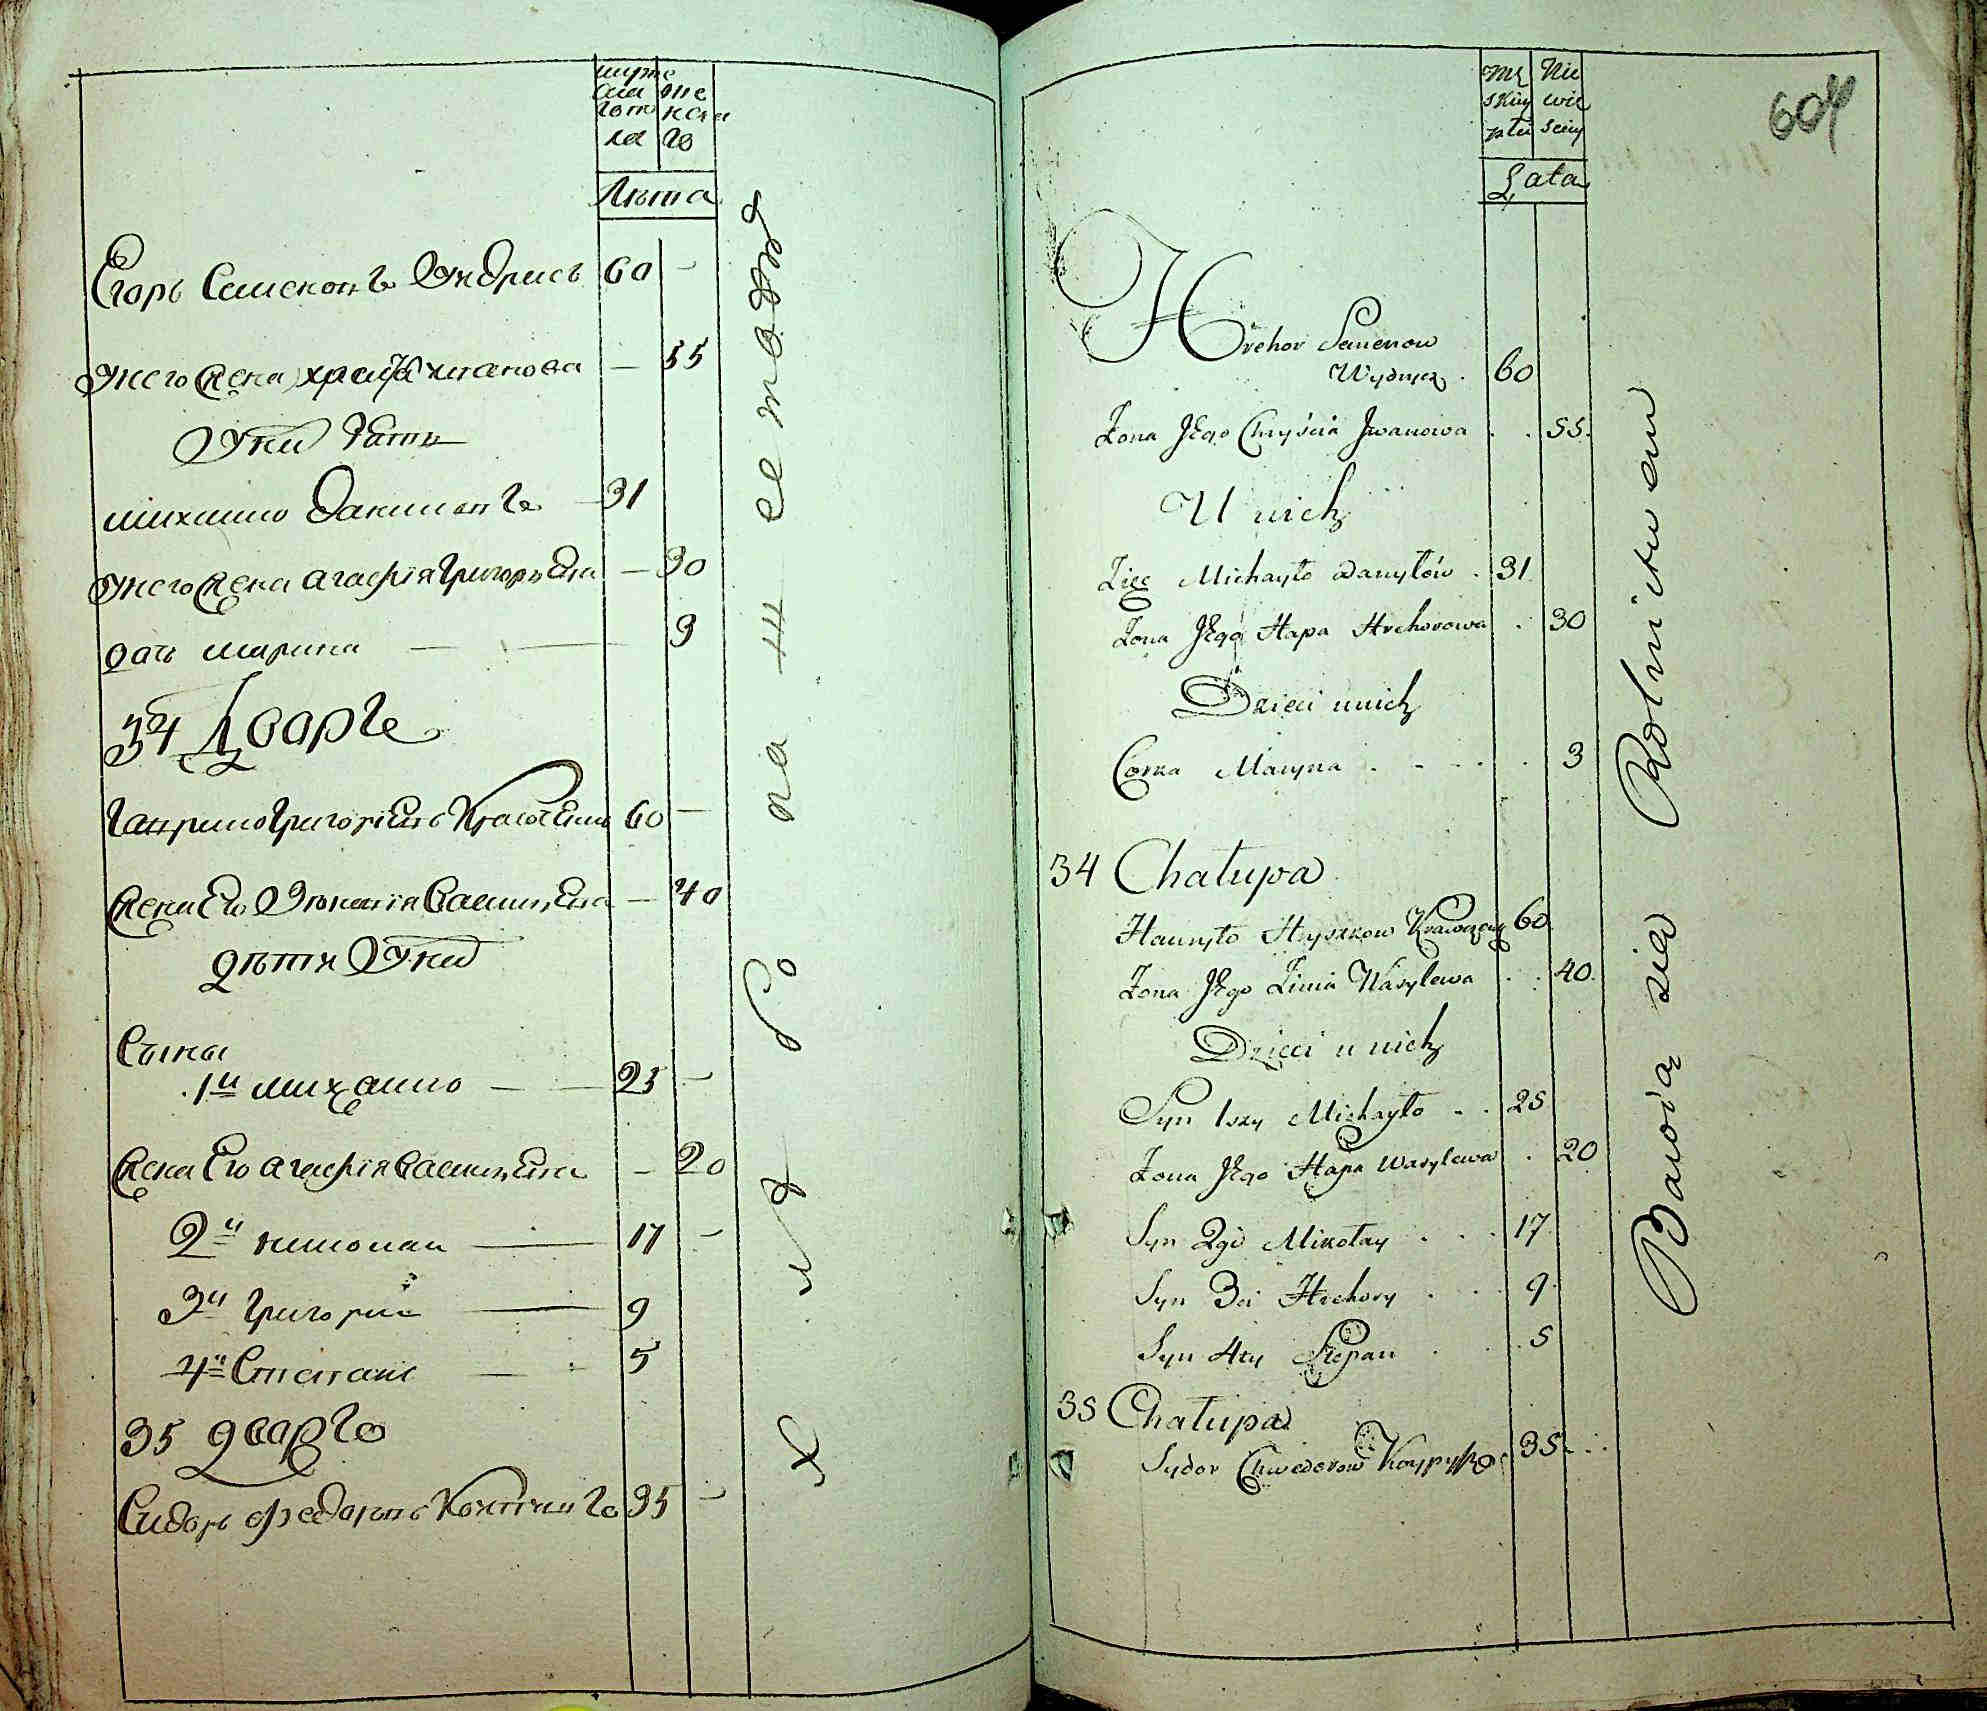 мужеска пола
женска го
Лѣта
Егоръ Семеновъ 60 —
у него жена христя иванова — 55
У них зять
михаило даниловъ — 31
у него жена агафія Григорьева — 30
дочь марина — 3
34 Дворъ
Гаврило Григорьевъ 60 —
жена его Васильева — 40
дѣти У них
Сыны
1й михаило — 25 —
жена Его агафія васильева — 20
2й николаи — 17 —
3й григорий — 9
4й Степанъ — 5
35 дворъ
Сидоръ федоровъ 35 —
604
Męskiey płci
Niewieściey
Łata
Hrehor Semenow
60
Żona Jego Chryścia Jwanowa . . 55.
U nich
Zięć Michayło Danyłów . 31
Żona Jego Hapa Hrehorowa . 30
Dzieci u nich
Corka Maryna . . . . . 3
34 Chałupa
Hawryło Hryszkow Krawczenko 60
Żona Jego Zinia Wasylewa . . 40.
Dzieci u nich
Syn 1szy Michayło . . 25
Żona Jego Hapa Wasylewa . 20
Syn 2gi Mikołay . . . 17
Syn 3ci Hrehory . . . 9.
Syn 4ty Stepan . . . 5
35 Chałupa
Sydor Chwedorow 35. . .
Bawią się Rolnictwem